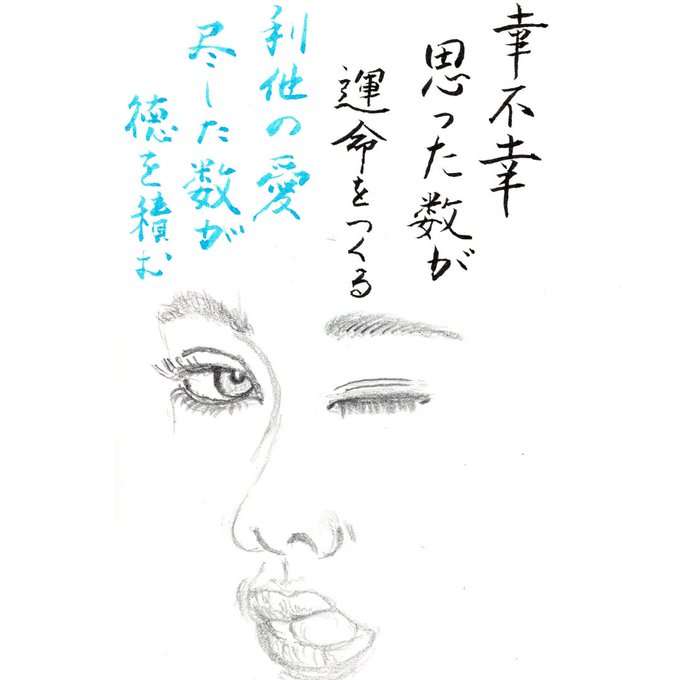 幸不幸
思った数が
運命をつくる
利他の愛
尽した数が
徳を積む